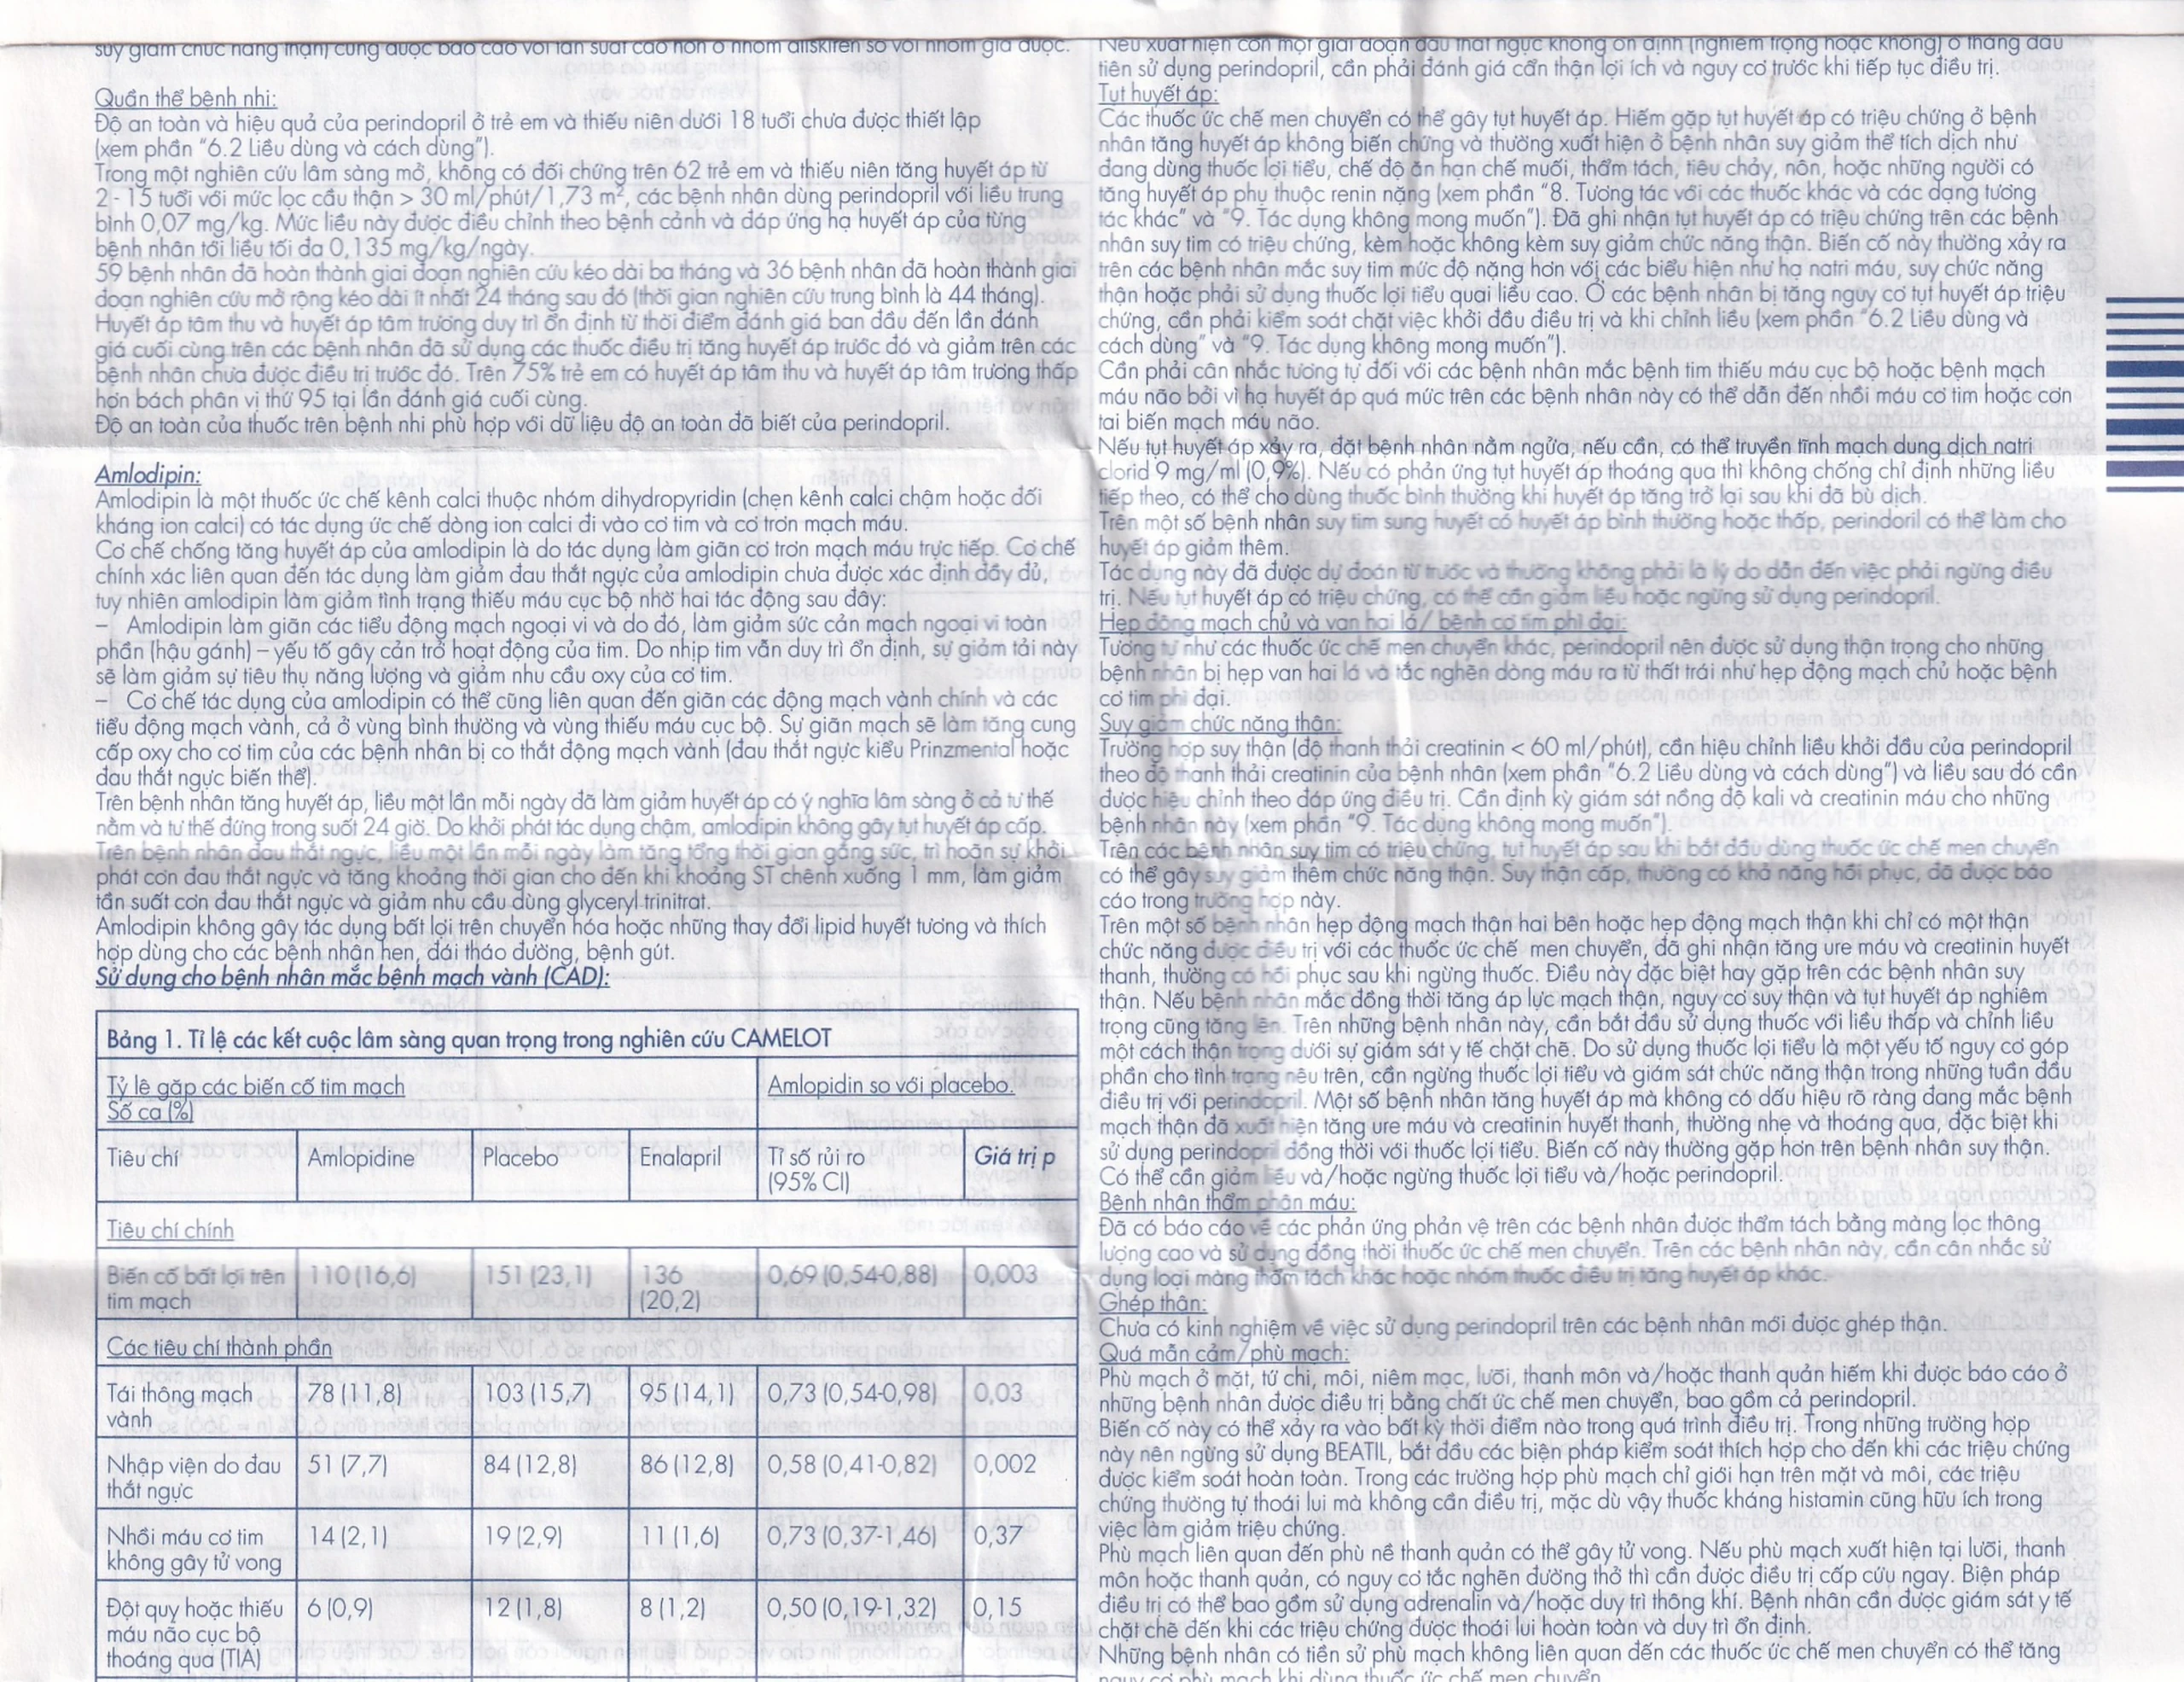 suy giảm chức năng thận) cũng được báo cáo với tần suất cao hơn ở nhóm aliskiren so với nhóm giả dược.
Quần thể bệnh nhi:
Độ an toàn và hiệu quả của perindopril ở trẻ em và thiếu niên dưới 18 tuổi chưa được thiết lập
(xem phần "6.2 Liều dùng và cách dùng").
Trong một nghiên cứu lâm sàng mở, không có đối chứng trên 62 trẻ em và thiếu niên tăng huyết áp từ
2 - 15 tuổi với mức lọc cầu thận > 30 ml/phút/1,73 m², các bệnh nhân dùng perindopril với liều trung
bình 0,07 mg/kg. Mức liều này được điều chỉnh theo bệnh cảnh và đáp ứng hạ huyết áp của từng
bệnh nhân tới liều tối đa 0,135 mg/kg/ngày.
59 bệnh nhân đã hoàn thành giai đoạn nghiên cứu kéo dài ba tháng và 36 bệnh nhân đã hoàn thành giai
đoạn nghiên cứu mở rộng kéo dài ít nhất 24 tháng sau đó (thời gian nghiên cứu trung bình là 44 tháng).
Huyết áp tâm thu và huyết áp tâm trương duy trì ổn định từ thời điểm đánh giá ban đầu đến lần đánh
giá cuối cùng trên các bệnh nhân đã sử dụng các thuốc điều trị tăng huyết áp trước đó và giảm trên các
bệnh nhân chưa được điều trị trước đó. Trên 75% trẻ em có huyết áp tâm thu và huyết áp tâm trương thấp
hơn bách phân vị thứ 95 tại lần đánh giá cuối cùng.
Độ an toàn của thuốc trên bệnh nhi phù hợp với dữ liệu độ an toàn đã biết của perindopril.
Amlodipin:
Amlodipin là một thuốc ức chế kênh calci thuộc nhóm dihydropyridin (chẹn kênh calci chậm hoặc đối
kháng ion calci) có tác dụng ức chế dòng ion calci đi vào cơ tim và cơ trơn mạch máu.
Cơ chế chống tăng huyết áp của amlodipin là do tác dụng làm giãn cơ trơn mạch máu trực tiếp. Cơ chế
chính xác liên quan đến tác dụng làm giảm đau thắt ngực của amlodipin chưa được xác định đầy đủ,
tuy nhiên amlodipin làm giảm tình trạng thiếu máu cục bộ nhờ hai tác động sau đây:
– Amlodipin làm giãn các tiểu động mạch ngoại vi và do đó, làm giảm sức cản mạch ngoại vi toàn
phần (hậu gánh) – yếu tố gây cản trở hoạt động của tim. Do nhịp tim vẫn duy trì ổn định, sự giảm tải này
sẽ làm giảm sự tiêu thụ năng lượng và giảm nhu cầu oxy của cơ tim.
– Cơ chế tác dụng của amlodipin có thể cũng liên quan đến giãn các động mạch vành chính và các
tiểu động mạch vành, cả ở vùng bình thường và vùng thiếu máu cục bộ. Sự giãn mạch sẽ làm tăng cung
cấp oxy cho cơ tim của các bệnh nhân bị co thắt động mạch vành (đau thắt ngực kiểu Prinzmental hoặc
đau thắt ngực biến thể).
Trên bệnh nhân tăng huyết áp, liều một lần mỗi ngày đã làm giảm huyết áp có ý nghĩa lâm sàng ở cả tư thế
nằm và tư thế đứng trong suốt 24 giờ. Do khởi phát tác dụng chậm, amlodipin không gây tụt huyết áp cấp.
Trên bệnh nhân đau thắt ngực, liều một lần mỗi ngày làm tăng tổng thời gian gắng sức, trì hoãn sự khởi
phát cơn đau thắt ngực và tăng khoảng thời gian cho đến khi khoảng ST chênh xuống 1 mm, làm giảm
tần suất cơn đau thắt ngực và giảm nhu cầu dùng glyceryl trinitrat.
Amlodipin không gây tác dụng bất lợi trên chuyển hóa hoặc những thay đổi lipid huyết tương và thích
hợp dùng cho các bệnh nhận hen, đái tháo đường, bệnh gút.
Sử dụng cho bệnh nhân mắc bệnh mạch vành (CAD):
Bảng 1. Tỉ lệ các kết cuộc lâm sàng quan trọng trong nghiên cứu CAMELOT
Tỷ lệ gặp các biến cố tim mạch
Số ca (%)
Amlopidin so với placebo.
Tiêu chí Amlopidine Placebo Enalapril Tỉ số rủi ro
(95% CI)
Giá trị p
Tiêu chí chính
Biến cố bất lợi trên
tim mạch
110 (16,6) 151 (23,1) 136
(20,2)
0,69 (0,54-0,88) 0,003
Các tiêu chí thành phần
Tái thông mạch
vành
78 (11,8) 103 (15,7) 95 (14,1) 0,73 (0,54-0,98) 0,03
Nhập viện do đau
thắt ngực
51 (7,7) 84 (12,8) 86 (12,8) 0,58 (0,41-0,82) 0,002
Nhồi máu cơ tim
không gây tử vong
14 (2,1) 19 (2,9) 11 (1,6) 0,73 (0,37-1,46) 0,37
Đột quỵ hoặc thiếu
máu não cục bộ
thoáng qua (TIA)
6 (0,9) 12 (1,8) 8 (1,2) 0,50 (0,19-1,32) 0,15
Nếu xuất hiện cơn một giai đoạn đau thắt ngực không ổn định (nghiêm trọng hoặc không) ở tháng đầu
tiên sử dụng perindopril, cần phải đánh giá cẩn thận lợi ích và nguy cơ trước khi tiếp tục điều trị.
Tụt huyết áp:
Các thuốc ức chế men chuyển có thể gây tụt huyết áp. Hiếm gặp tụt huyết áp có triệu chứng ở bệnh
nhân tăng huyết áp không biến chứng và thường xuất hiện ở bệnh nhân suy giảm thể tích dịch như
đang dùng thuốc lợi tiểu, chế độ ăn hạn chế muối, thẩm tách, tiêu chảy, nôn, hoặc những người có
tăng huyết áp phụ thuộc renin nặng (xem phần "8. Tương tác với các thuốc khác và các dạng tương
tác khác" và "9. Tác dụng không mong muốn"). Đã ghi nhận tụt huyết áp có triệu chứng trên các bệnh
nhân suy tim có triệu chứng, kèm hoặc không kèm suy giảm chức năng thận. Biến cố này thường xảy ra
trên các bệnh nhân mắc suy tim mức độ nặng hơn với các biểu hiện như hạ natri máu, suy chức năng
thận hoặc phải sử dụng thuốc lợi tiểu quai liều cao. Ở các bệnh nhân bị tăng nguy cơ tụt huyết áp triệu
chứng, cần phải kiểm soát chặt việc khởi đầu điều trị và khi chỉnh liều (xem phần "6.2 Liều dùng và
cách dùng" và "9. Tác dụng không mong muốn").
Cần phải cân nhắc tương tự đối với các bệnh nhân mắc bệnh tim thiếu máu cục bộ hoặc bệnh mạch
máu não bởi vì hạ huyết áp quá mức trên các bệnh nhân này có thể dẫn đến nhồi máu cơ tim hoặc cơn
tai biến mạch máu não.
Nếu tụt huyết áp xảy ra, đặt bệnh nhân nằm ngửa, nếu cần, có thể truyền tĩnh mạch dung dịch natri
clorid 9 mg/ml (0,9%). Nếu có phản ứng tụt huyết áp thoáng qua thì không chống chỉ định những liều
tiếp theo, có thể cho dùng thuốc bình thường khi huyết áp tăng trở lại sau khi đã bù dịch.
Trên một số bệnh nhân suy tim sung huyết có huyết áp bình thường hoặc thấp, perindoril có thể làm cho
huyết áp giảm thêm.
Tác dụng này đã được dự đoán từ trước và thường không phải là lý do dẫn đến việc phải ngừng điều
trị. Nếu tụt huyết áp có triệu chứng, có thể cần giảm liều hoặc ngừng sử dụng perindopril.
Hẹp động mạch chủ và van hai lá/ bệnh cơ tim phì đại:
Tương tự như các thuốc ức chế men chuyển khác, perindopril nên được sử dụng thận trọng cho những
bệnh nhân bị hẹp van hai lá và tắc nghẽn dòng máu ra từ thất trái như hẹp động mạch chủ hoặc bệnh
cơ tim phì đại.
Suy giảm chức năng thận:
Trường hợp suy thận (độ thanh thải creatinin < 60 ml/phút), cần hiệu chỉnh liều khởi đầu của perindopril
theo độ thanh thải creatinin của bệnh nhân (xem phần "6.2 Liều dùng và cách dùng") và liều sau đó cần
được hiệu chỉnh theo đáp ứng điều trị. Cần định kỳ giám sát nồng độ kali và creatinin máu cho những
bệnh nhân này (xem phần "9. Tác dụng không mong muốn").
Trên các bệnh nhân suy tim có triệu chứng, tụt huyết áp sau khi bắt đầu dùng thuốc ức chế men chuyển
có thể gây suy giảm thêm chức năng thận. Suy thận cấp, thường có khả năng hồi phục, đã được báo
cáo trong trường hợp này.
Trên một số bệnh nhân hẹp động mạch thận hai bên hoặc hẹp động mạch thận khi chỉ có một thận
chức năng được điều trị với các thuốc ức chế men chuyển, đã ghi nhận tăng ure máu và creatinin huyết
thanh, thường có hồi phục sau khi ngừng thuốc. Điều này đặc biệt hay gặp trên các bệnh nhân suy
thận. Nếu bệnh nhân mắc đồng thời tăng áp lực mạch thận, nguy cơ suy thận và tụt huyết áp nghiêm
trọng cũng tăng lên. Trên những bệnh nhân này, cần bắt đầu sử dụng thuốc với liều thấp và chỉnh liều
một cách thận trọng dưới sự giám sát y tế chặt chẽ. Do sử dụng thuốc lợi tiểu là một yếu tố nguy cơ góp
phần cho tình trạng nêu trên, cần ngừng thuốc lợi tiểu và giám sát chức năng thận trong những tuần đầu
điều trị với perindopril. Một số bệnh nhân tăng huyết áp mà không có dấu hiệu rõ ràng đang mắc bệnh
mạch thận đã xuất hiện tăng ure máu và creatinin huyết thanh, thường nhẹ và thoáng qua, đặc biệt khi
sử dụng perindopril đồng thời với thuốc lợi tiểu. Biến cố này thường gặp hơn trên bệnh nhân suy thận.
Có thể cần giảm liều và/hoặc ngừng thuốc lợi tiểu và/hoặc perindopril.
Bệnh nhân thẩm phân máu:
Đã có báo cáo về các phản ứng phản vệ trên các bệnh nhân được thẩm tách bằng màng lọc thông
lượng cao và sử dụng đồng thời thuốc ức chế men chuyển. Trên các bệnh nhân này, cần cân nhắc sử
dụng loại màng thẩm tách khác hoặc nhóm thuốc điều trị tăng huyết áp khác.
Ghép thận:
Chưa có kinh nghiệm về việc sử dụng perindopril trên các bệnh nhân mới được ghép thận.
Quá mẫn cảm/phù mạch:
Phù mạch ở mặt, tứ chi, môi, niêm mạc, lưỡi, thanh môn và/hoặc thanh quản hiếm khi được báo cáo ở
những bệnh nhân được điều trị bằng chất ức chế men chuyển, bao gồm cả perindopril.
Biến cố này có thể xảy ra vào bất kỳ thời điểm nào trong quá trình điều trị. Trong những trường hợp
này nên ngừng sử dụng BEATIL, bắt đầu các biện pháp kiểm soát thích hợp cho đến khi các triệu chứng
được kiểm soát hoàn toàn. Trong các trường hợp phù mạch chỉ giới hạn trên mặt và môi, các triệu
chứng thường tự thoái lui mà không cần điều trị, mặc dù vậy thuốc kháng histamin cũng hữu ích trong
việc làm giảm triệu chứng.
Phù mạch liên quan đến phù nề thanh quản có thể gây tử vong. Nếu phù mạch xuất hiện tại lưỡi, thanh
môn hoặc thanh quản, có nguy cơ tắc nghẽn đường thở thì cần được điều trị cấp cứu ngay. Biện pháp
điều trị có thể bao gồm sử dụng adrenalin và/hoặc duy trì thông khí. Bệnh nhân cần được giám sát y tế
chặt chẽ đến khi các triệu chứng được thoái lui hoàn toàn và duy trì ổn định.
Những bệnh nhân có tiền sử phù mạch không liên quan đến các thuốc ức chế men chuyển có thể tăng
nguy cơ phù mạch khi dùng thuốc ức chế men chuyển